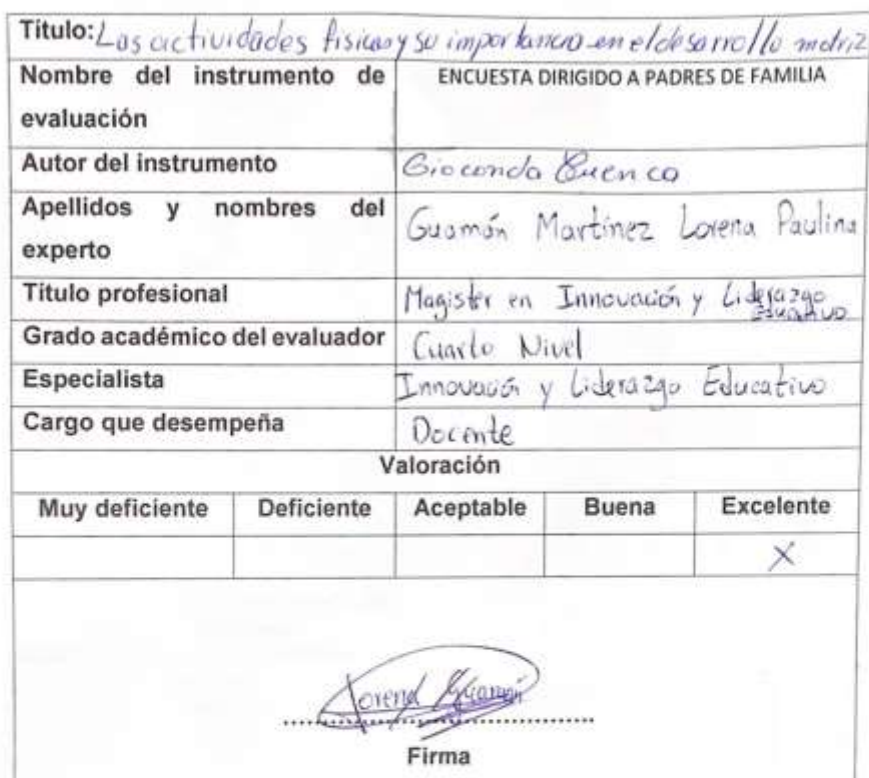 Título: Las actividades físicas y su importancia en el desarrollo motriz
Nombre del instrumento de evaluación
ENCUESTA DIRIGIDO A PADRES DE FAMILIA
Autor del instrumento
Gioconda Cuenca
Apellidos y nombres del experto
Guamán Martínez Lorena Paulina
Título profesional
Magister en Innovación y Liderazgo Educativo
Grado académico del evaluador
Cuarto Nivel
Especialista
Innovación y Liderazgo Educativo
Cargo que desempeña
Docente
Valoración
Muy deficiente Deficiente Aceptable Buena Excelente
X
Lorena Guamán
Firma